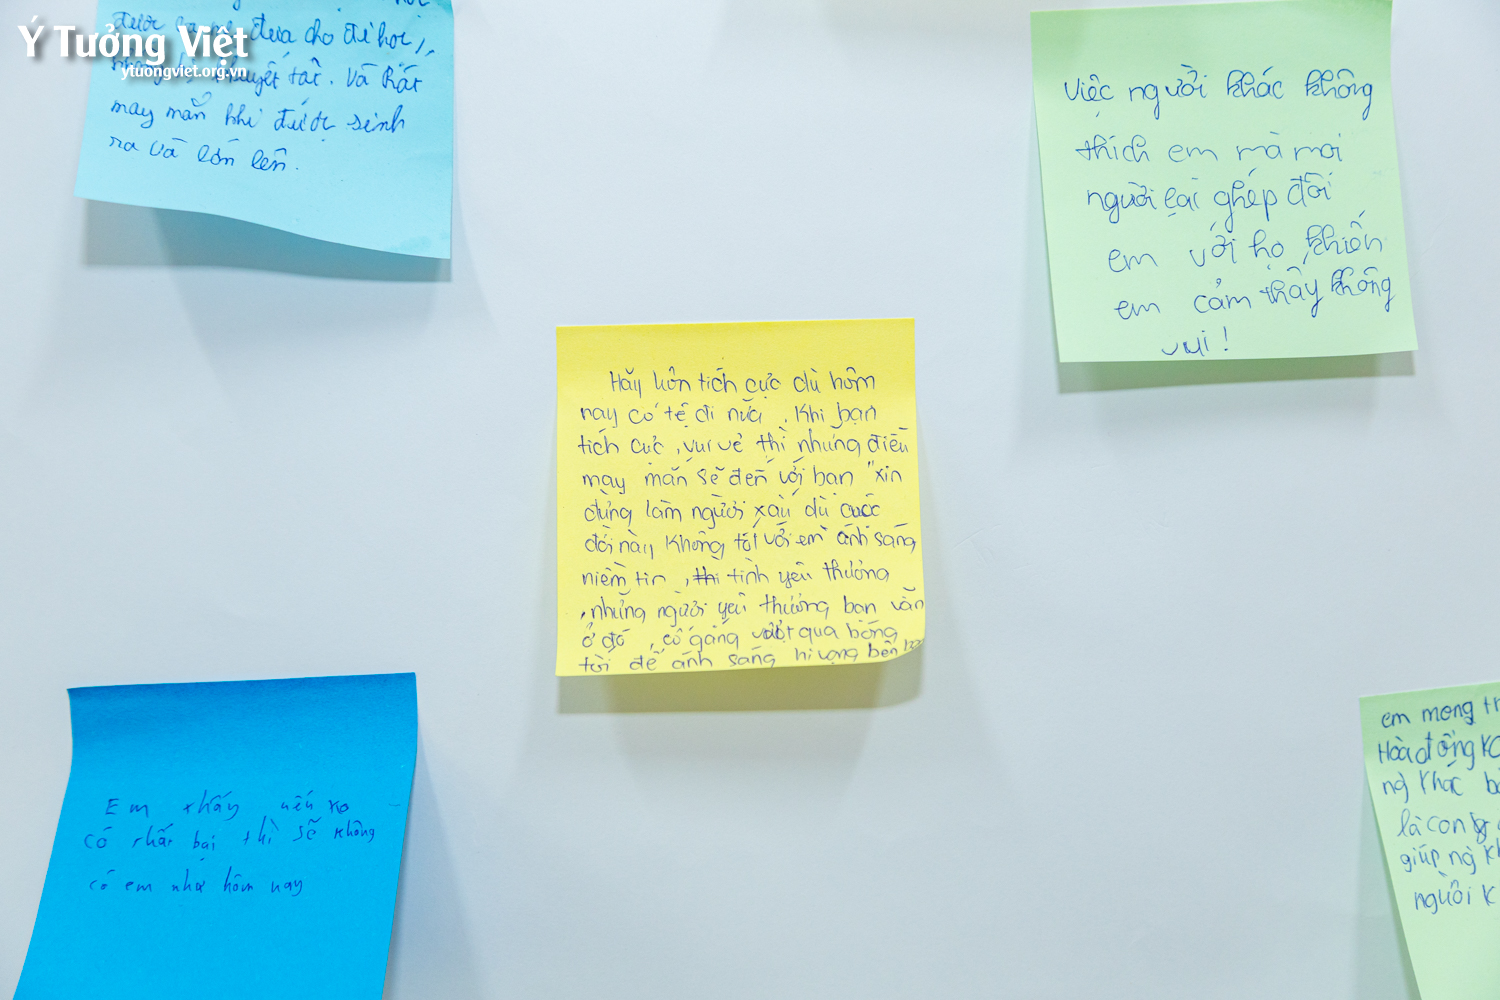 Ý Tưởng Việt
ytuongviet.org.vn
đưa cho đi học,
khuyết tật. Và rất
may mắn khi được sinh
ra và lớn lên.
Việc người khác không
thích em mà mọi
người lại ghép đôi
em với họ khiến
em cảm thấy không
vui!
Hãy luôn tích cực dù hôm
nay có tệ đi nữa, Khi bạn
tích cực, vui vẻ thì những điều
may mắn sẽ đến với bạn "xin
đừng làm người xấu dù cuộc
đời này không tốt với em" ánh sáng
niềm tin, thì tình yêu thương
, những người yêu thương bạn vẫn
ở đó, cố gắng vượt qua bóng
tối để ánh sáng hi vọng bên
Em thấy nếu ko
có thất bại thì sẽ không
có em như hôm nay
em mong tr
Hoà đồng
ng khác
là con
giúp ng kh
người k